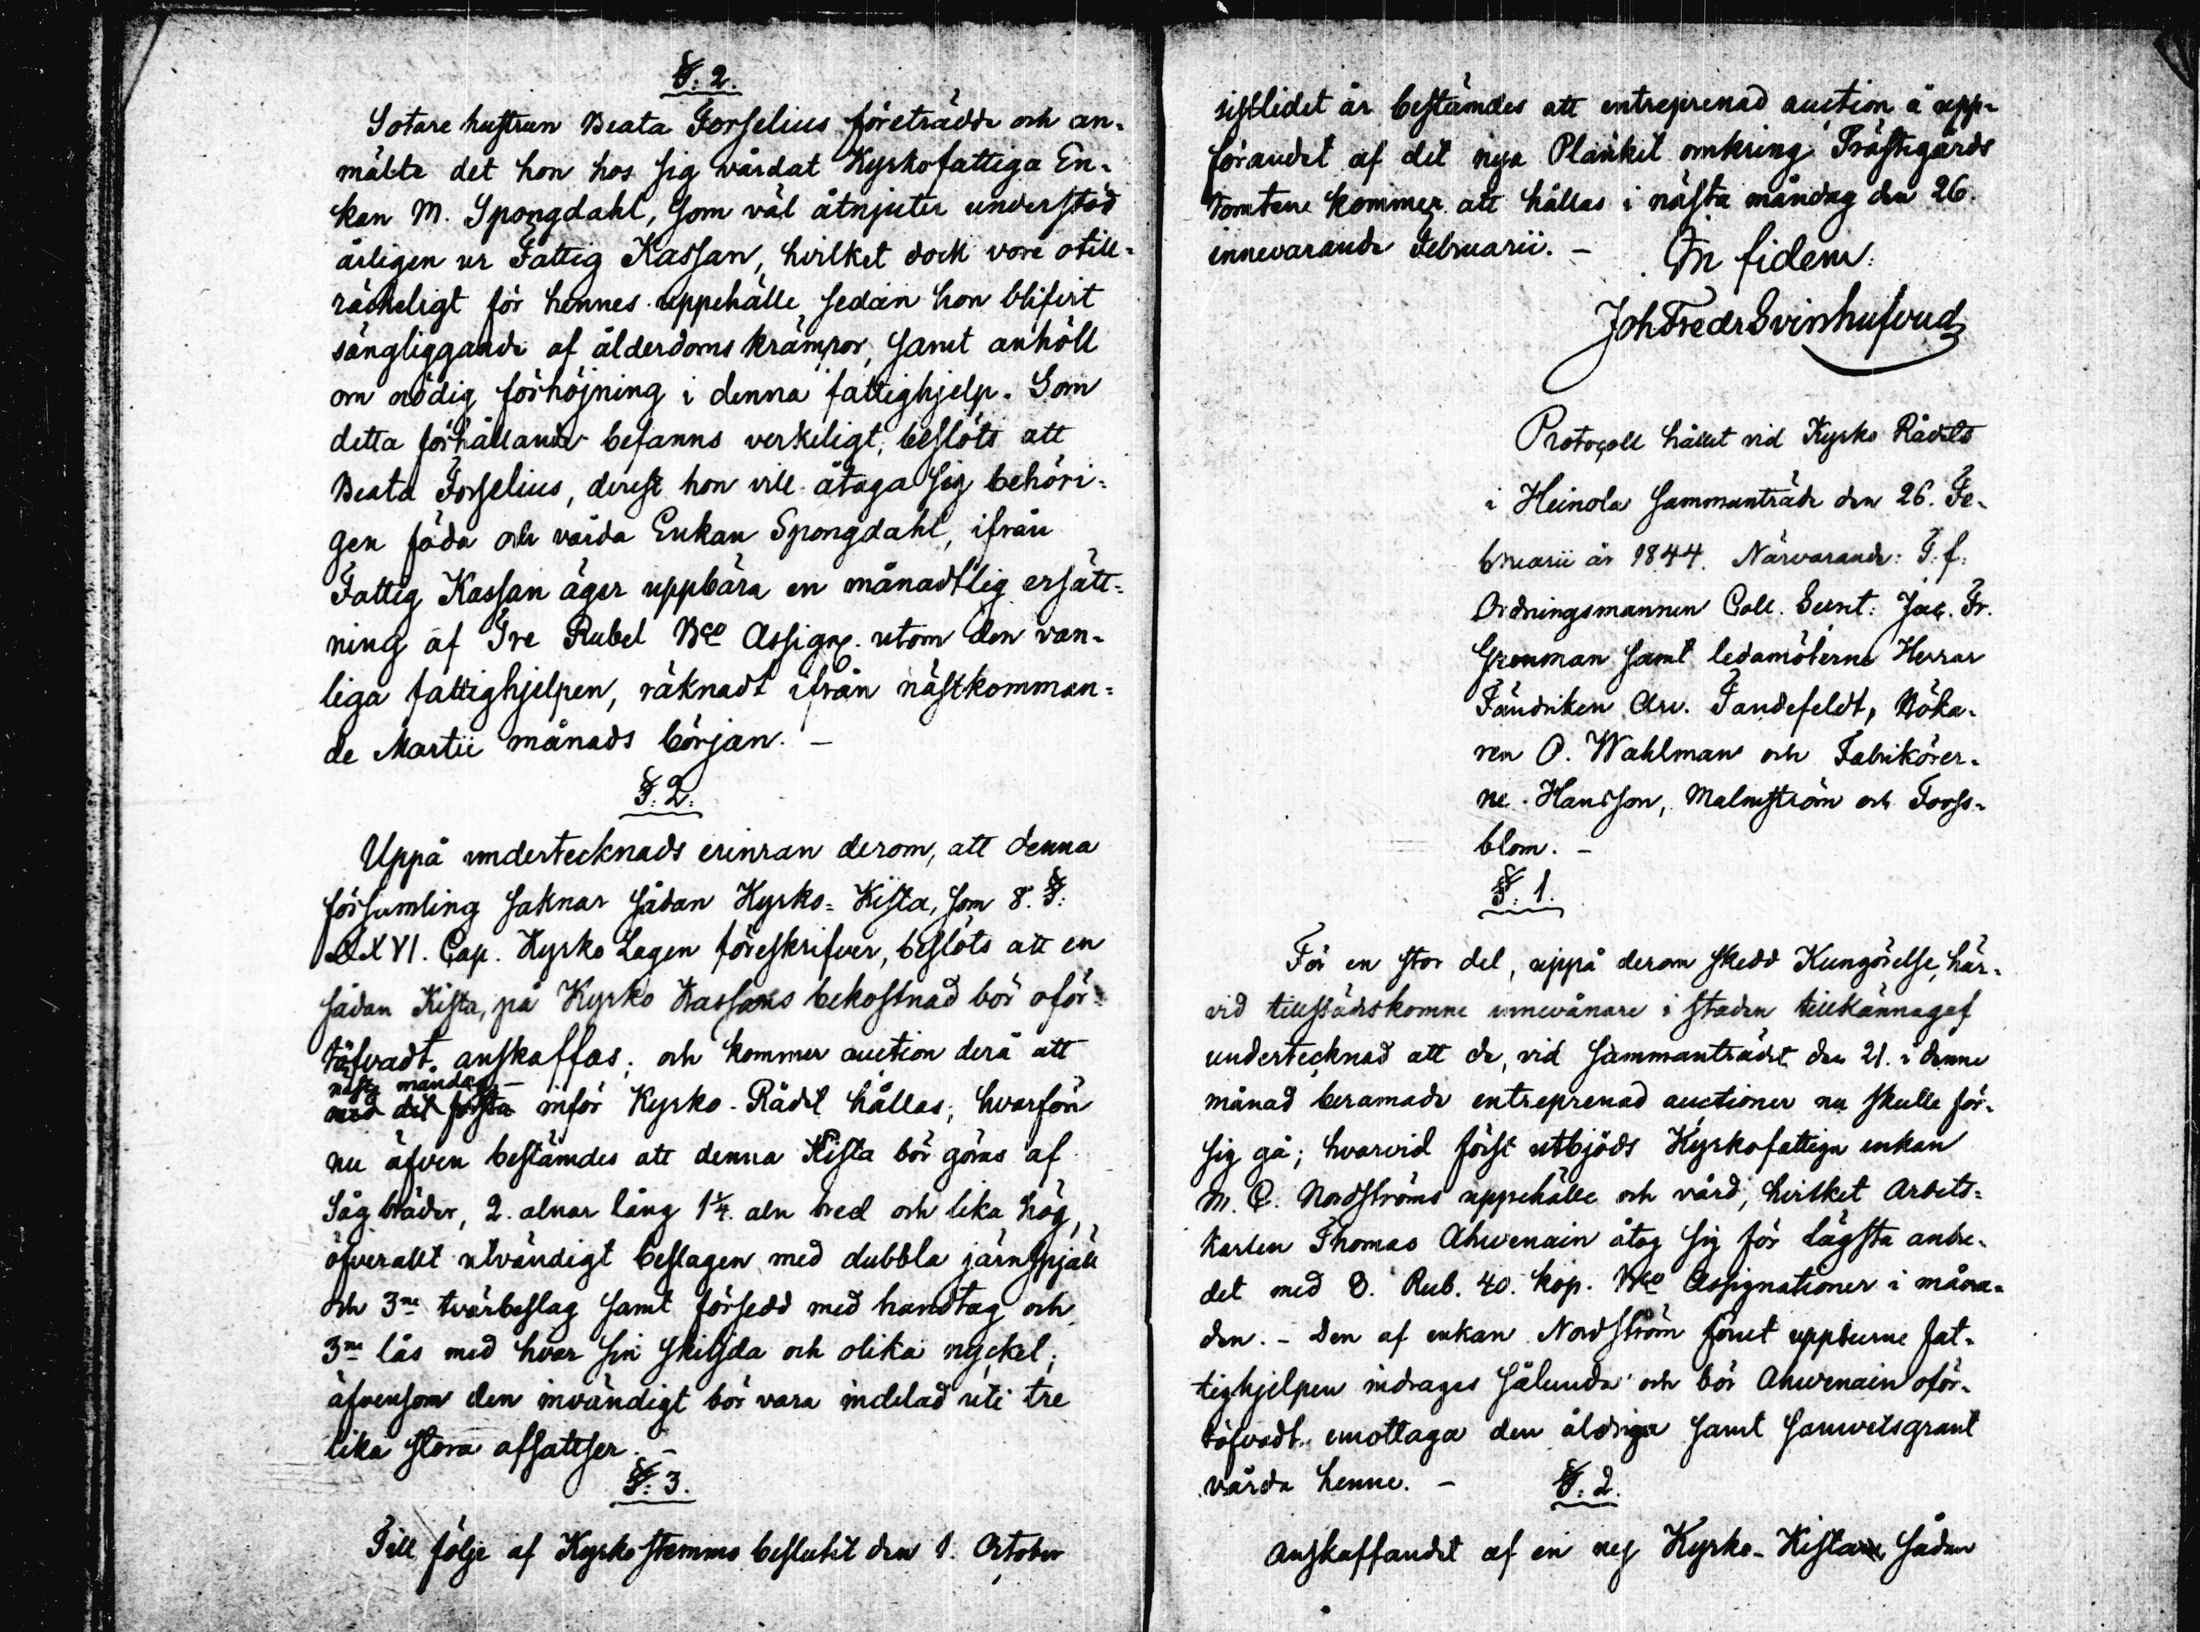 §. 2.
Sotare hustrun Beata Forselius företrädde och an-
mälte det hon hos sig vårdat Kyrkofattiga En-
kan M. Spongdahl, som väl åtnjuter understöd
årligen ur Fattig Kassan, hvilket dock vore otill-
räckeligt för hennes uppehälle sedan hon blifvit
sängliggande af ålderdoms krämpor, samt anhöll
om nödig förhöjning i denna fattighjelp. Som
detta förhållande befanns verkeligt, beslöts att
Beata Forselius, derest hon vill åtaga sig behöri-
gen föda och vårda Enkan Spongdahl, ifrån
Fattig Kassan äger uppbära en månadtlig ersätt-
ning af Tre Rubel Bco Assign. utom den van-
liga fattighjelpen, räknadt ifrån nästkomman-
de Martii månads början. -
§. 2.
Uppå undertecknads erinran derom, att denna
församling saknar sådan Kyrko-Kista, som 8. §:
XXVI. Cap. Kyrko Lagen föreskrifver, beslöts att en
sådan Kista, på Kyrko Kassans bekostnad bör oför-
töfvadt anskaffas; och kommer auction derå att
nästa måndag -
med det första inför Kyrko-Rådet hållas; hvarför
nu äfven bestämdes att denna Kista bör göras af
Såg bräder, 2. alnar lång 1¼. aln bred och lika hög,
öfverallt utvändigt beslagen med dubbla järnspjäll
och 3ne tvärbeslag samt försedd med handtag och
3ne lås med hvar sin skiljda och olika nyckel;
äfvensom den invändigt bör vara indelad uti tre
lika stora afsattser. -
§. 3.
Till följe af Kyrkostemmo beslutet den 1. October
sistlidet år bestämdes att entreprenad auction å upp-
förandet af det nya Planket omkring Prästgårds
tomten kommer att hållas i nästa måndag den 26.
innevarande Februarii. - In fidem:
Joh Fredr Svinhufvud
Protocoll hållet vid Kyrko Rådets
i Heinola sammanträde den 26. Fe-
bruarii år 1844. Närvarande: T. f.
Ordningsmannen Coll. Secret: Jac. Fr.
Grenman samt ledamöterne Herrar
Fändriken Arv. Tandefeldt,
ren P. Wahlman och Fabrikörer-
ne Hansson, Malmström och Forss-
blom. -
§. 1.
För en stor del, uppå derom skedd Kungörelse, här-
vid tillstädeskomne innevånare i staden tillkännagaf
undertecknad att de, vid sammanträdet den 21. i denne
månad beramade entreprenad auctioner nu skulle för-
sig gå; hvarvid först utbjöds Kyrkofattiga enkan
M. C. Nordströms uppehälle och vård, hvilket Arbets-
karlen Thomas Ahvenain åtog sig för lägsta anbu-
det med 8. Rub. 40. kop. Bco Assignationer i måna-
den. - Den af enkan Nordström förut uppburne fat-
tighjelpen indrages sålunda och bör Ahvenain oför-
töfvadt emottaga den åldriga samt samvetsgrant
vårda henne. - §. 2.
Anskaffandet af en ny Kyrko-Kista sådan